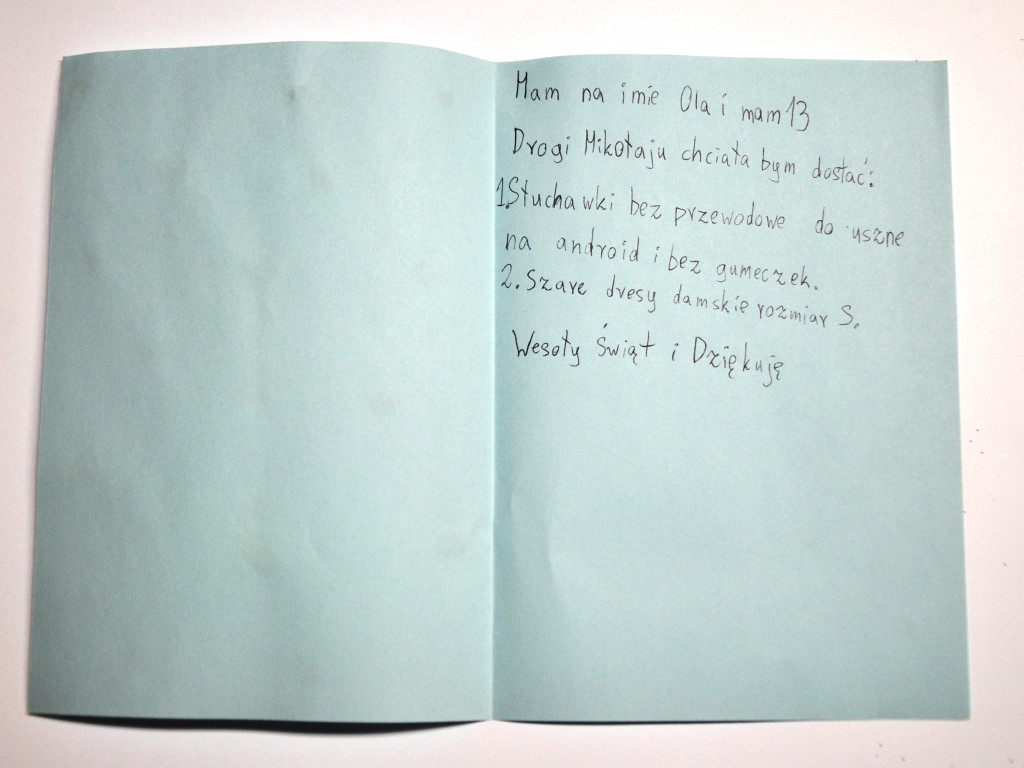 Mam na imie Ola i mam 13
Drogi Mikołaju chciała bym dostać:
1. Słuchawki bez przewodowe do uszne
na android i bez gumeczek.
2. Szare dresy damskie rozmiar S.
Wesoły Świąt i Dziękuję